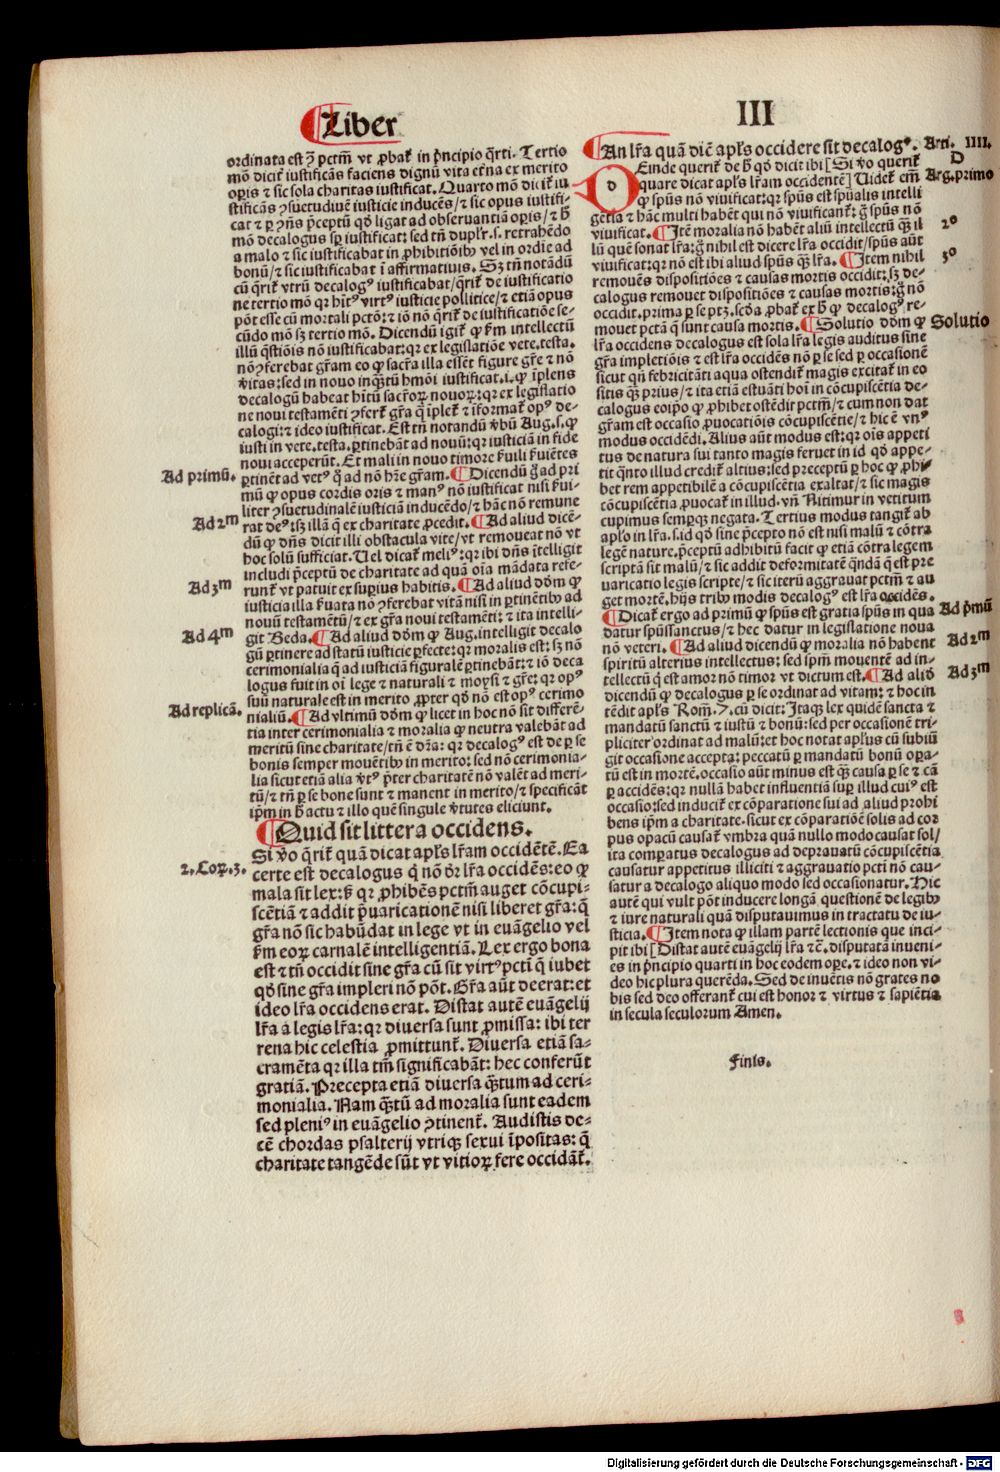 Liber
III
ordinata est ꝯ̃ pctm̄ vt ꝓbat᷑ in p̄ncipio q̄rti. Tertio
mō dicit᷑ iustificās faciens dignū vita et̄na ex merito
oꝑis ⁊ sic sola charitas iustificat. Quarto mō dicit᷑ iu
stificās ꝯsuetudinē iusticie inducēs/ ⁊ sic opus iustifi-
cat ⁊ ꝑ ꝯn̄s p̄ceptū qd̄ ligat ad obseruantiā oꝑis/ ⁊ h̄
mō decalogus sp̄ iustificat: sed tn̄ dupłr.s. retrahēdo
a malo ⁊ sic iustificabat in ꝓhibitiōibꝰ vel in ordie ad
bonū/ ⁊ sic iustificabat ī affirmatiuis. Sꝫ tn̄ notādū
cū q̄rit᷑ vtrū decalogꝰ iustificabat/ q̄rit᷑ de iustificatio
ne tertio mō qꝛ hn̄t᷑ virtꝰ iusticie pollitice/ ⁊ etiā opus
pōt esse cū mortali pctō: ⁊ iō nō q̄rit᷑ de iustificatiōe se-
cūdo mō sꝫ tertio mō. Dicendū igit᷑ ꝙ ẜm intellectū
illū q̄stiōis nō iustificabat: qꝛ ex legislatiōe vete. testa.
nō ꝯferebat gr̄am eo ꝙ sacr̄a illa essēt figure gr̄e ⁊ nō
v̄itas: sed in nouo inq̄ꝫtū hmōi iustificat.i. ꝙ īplens
decalogū habeat hītū sacr̄oꝝ nouoꝝ: qꝛ ex legislatio
ne noui testamēti ꝯfert᷑ gr̄a q̄ īplet᷑ ⁊ īformat᷑ opꝰ de-
calogi: ⁊ ideo iustificat. Est tn̄ notandū v̄bū Aug.s. ꝙ
iusti in vete. testa. ꝑtinebāt ad nouū: qꝛ iusticiā in fide
noui acceperūt. Et mali in nouo timore ẜuili ẜuiētes
Ad primū. ꝑtinēt ad vetꝰ q̄ ad nō hr̄e gr̄am. Dicendū g̊ ad pri
mū ꝙ opus cordis oris ⁊ manꝰ nō iustificat nisi ẜui-
liter ꝯsuetudinalē iusticiā inducēdo/ ⁊ hāc nō remune
Ad 2m rat deꝰ: sꝫ illā q̄ ex charitate ꝓcedit. Ad aliud dicē-
dū ꝙ dn̄s dicit illi obstacula vite/ vt remoueat nō vt
hoc solū sufficiat. Uel dicat᷑ meliꝰ: qꝛ ibi dn̄s ītelligit
includi p̄ceptū de charitate ad quā oīa mādata refe-
Ad 3m runt᷑ vt patuit ex suꝑius habitis. Ad aliud dōm ꝙ
iusticia illa ẜuata nō ꝯferebat vitā nisi in ꝑtinētibꝰ ad
nouū testamētū/ ⁊ ex gr̄a noui testamēti: ⁊ ita intelli-
Ad 4m git Beda. Ad aliud dōm ꝙ Aug. intelligit decalo
gū ꝑtinere ad statū iusticie ꝑfecte: qꝛ moralis est: sꝫ nō
cerimonialia q̄ ad iusticiā figuralē ꝑtinebāt: ⁊ iō deca
logus fuit in oī lege ⁊ naturali ⁊ moysi ⁊ gr̄e: qꝛ opꝰ
suū naturale est in merito ꝓpter qd̄ nō est opꝰ cerimo
Ad replicā. nialiū. Ad vltimū dōm ꝙ licet in hoc nō sit differē-
tia inter cerimonialia ⁊ moralia ꝙ neutra valebāt ad
meritū sine charitate/ tn̄ ē dr̄a: qꝛ decalogꝰ est de ꝑ se
bonis semper mouētibꝰ in merito: sed nō cerimonia-
lia sicut etiā alia v̄tꝰ p̄ter charitatē nō valēt ad meri-
tū/ ⁊ tn̄ ꝑ se bone sunt ⁊ manent in merito/ ⁊ specificāt
ip̄m in h̄ actu ⁊ illo quē singule v̄tutes eliciunt.
Quid sit littera occidens.
Si v̊o q̄rit᷑ quā dicat apl̄s lr̄am occidētē. Ea
2. Coꝝ. 3. certe est decalogus q̄ nō dr̄ lr̄a occidēs: eo ꝙ
mala sit lex: ẜꝫ qꝛ ꝓhibēs pctm̄ auget cōcupi-
scētiā ⁊ addit p̄uaricationē nisi liberet gr̄a: q̄
gr̄a nō sic habūdat in lege vt in euāgelio vel
ẜm eoꝝ carnalē intelligentiā. Lex ergo bona
est ⁊ tn̄ occidit sine gr̄a cū sit virtꝰ pcti q̄ iubet
qd̄ sine gr̄a impleri nō pōt. Gr̄a aūt deerat: et
ideo lr̄a occidens erat. Distat autē euāgelij
lr̄a a legis lr̄a: qꝛ diuersa sunt ꝓmissa: ibi ter
rena hic celestia ꝓmittunt᷑. Diuersa etiā sa-
cramēta qꝛ illa tm̄ significabāt: hec conferūt
gratiā. Precepta etiā diuersa q̄ꝫtum ad ceri-
monialia. Nam q̄ꝫtū ad moralia sunt eadem
sed pleniꝰ in euāgelio ꝯtinent᷑. Audistis de-
cē chordas psalterij vtriqꝫ sexui īpositas: q̄
charitate tangēde sūt vt vitioꝝ fere occidāt᷑.
An lr̄a quā diē apl̄s occidere sit decalogꝰ. Arti. IIII.
D
d
Einde querit᷑ de h̄ qd̄ dicit ibi [Si v̊o querit᷑
quare dicat apl̄s lr̄am occidentē] Uidet᷑ em̄ Arg. primo
ꝙ sp̄us nō viuificat: qꝛ sp̄us est sp̄ualis intelli
gētia ⁊ hanc multi habēt qui nō viuificant᷑: g̊ sp̄us nō
viuificat. Itē moralia nō habēt aliū intellectū q̄ꝫ il 2o
lū quē sonat lr̄a: g̊ nihil est dicere lr̄a occidit/ sp̄us aūt
viuificat: qꝛ nō est ibi aliud sp̄us q̄ꝫ lr̄a. Item nihil 3o
remouēs dispositiōes ⁊ causas mortis occidit: sꝫ de-
calogus remouet dispositiōes ⁊ causas mortis: g̊ nō
occidit. prima ꝑ se ptꝫ. scd̄a ꝓbat᷑ ex h̄ ꝙ decalogꝰ re-
mouet pctā q̄ sunt causa mortis. Solutio dōm ꝙ Solutio
lr̄a occidens decalogus est sola lr̄a legis auditus sine
gr̄a impletiōis ⁊ est lr̄a occidēs nō ꝑ se sed ꝑ occasionē
sicut qn̄ febricitāti aqua ostendit᷑ magis excitat᷑ in eo
sitis q̄ꝫ prius/ ⁊ ita etiā estuāti hoī in cōcupiscētia de-
calogus eoip̄o ꝙ ꝓhibet ostēdit pctm̄/ ⁊ cum non dat
gr̄am est occasio ꝓuocatiōis cōcupiscētie/ ⁊ hic ē vnꝰ
modus occidēdi. Alius aūt modus est: qꝛ oīs appeti
tus de natura sui tanto magis feruet in id qd̄ appe-
tit q̄nto illud credit᷑ altius: sed preceptū ꝑ hoc ꝙ ꝓhi-
bet rem appetibilē a cōcupiscētia exaltat/ ⁊ sic magis
cōcupiscētia ꝓuocat᷑ in illud. vn̄ Nitimur in vetitum
cupimus semꝑqꝫ negata. Tertius modus tangit᷑ ab
apl̄o in lr̄a.s. id qd̄ sine p̄cepto nō est nisi malū ⁊ cōtra
legē nature, p̄ceptū adhibitū facit ꝙ etiā cōtra legem
scriptā sit malū/ ⁊ sic addit deformitatē q̄ndā q̄ est pre
uaricatio legis scripte/ ⁊ sic iterū aggrauat pctm̄ ⁊ au
get mortē. hijs tribꝰ modis decalogꝰ est lr̄a occidēs.
Dicat᷑ ergo ad primū ꝙ sp̄us est gratia sp̄us in qua Ad p̄mū
datur sp̄ussanctus/ ⁊ hec datur in legislatione noua
nō veteri. Ad aliud dicendū ꝙ moralia nō habent Ad 2m
spiritū alterius intellectus: sed sp̄m mouentē ad in-
tellectū q̄ est amor nō timor vt dictum est. Ad aliud Ad 3m
dicendū ꝙ decalogus ꝑ se ordinat ad vitam: ⁊ hoc in
tēdit apl̄s Rom̄. 7. cū dicit: Itaqꝫ lex quidē sancta ⁊
mandatū sanctū ⁊ iustū ⁊ bonū: sed per occasionē tri-
pliciter ordinat ad malū: et hoc notat apl̄us cū subiū
git occasione accepta: peccatū ꝑ mandatū bonū oꝑa-
tū est in mortē. occasio aūt minus est q̄ꝫ causa ꝑ se ⁊ cā
ꝑ accidēs: qꝛ nullā habet influentiā suꝑ illud cuiꝰ est
occasio: sed inducit᷑ ex cōparatione sui ad aliud prohi
bens ip̄m a charitate. sicut ex cōparatiōē solis ad cor
pus opacū causat᷑ vmbra quā nullo modo causat sol/
ita comꝑatus decalogus ad deprauatū cōcupiscētia
causatur appetitus illiciti ⁊ aggrauatio pcti nō cau-
satur a decalogo aliquo modo sed occasionatur. Hic
autē qui vult pōt inducere longā questionē de legibꝰ
⁊ iure naturali quā disputauimus in tractatu de iu-
sticia. Item nota ꝙ illam partē lectionis que inci-
pit ibi [Distat autē euāgelij lr̄a ⁊c̄. disputatā inueni-
es in p̄ncipio quarti in hoc eodem oꝑe. ⁊ ideo non vi-
deo hic plura querēda. Sed de inuētis nō grates no
bis sed deo offerant᷑ cui est honor ⁊ virtus ⁊ sapiētia
in secula seculorum Amen.
Finis.
Digitalisierung gefördert durch die Deutsche Forschungsgemeinschaft - DFG